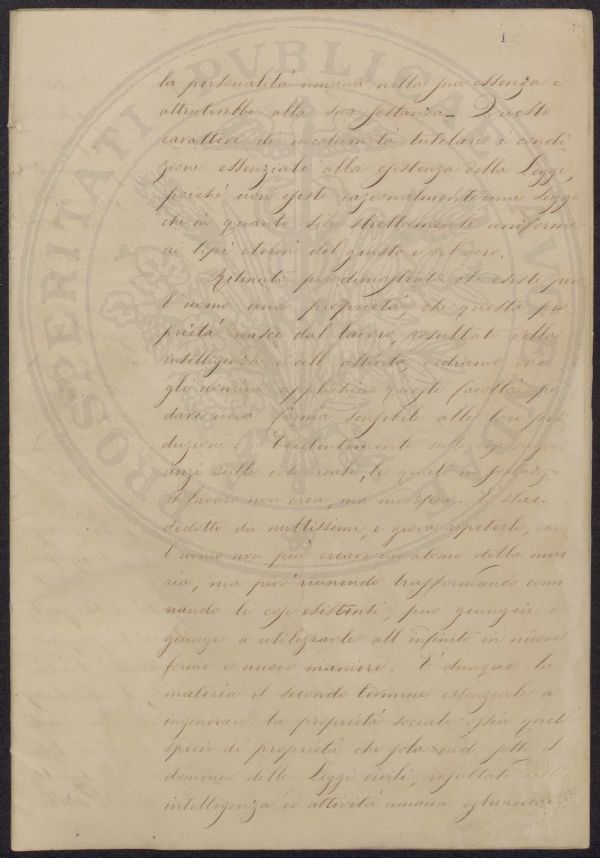 1
la personalità umana nella sua essenza e
alla sua sostanza_ Questo
carattere di tutelare è condi
zione essenziale alla esistenza della Legge,
poiché non esiste razionalmente una Legge
che in quanto sia strettamente uniforme
ai tipi eterni del giusto e del vero.
Ritenuto più dimostrato che esiste per
l'uomo una proprietà, che questa pro
prietà nasce dal lavoro, resultato della
intelligenza e dell'attività, vediamo ora
gli uomini queste facoltà per
dare una forma sensibile alle loro pro
duzioni. Evidentemente
anzi sulle cose create, le quali
il lavoro non crea, ma modifica. È stato
dedotto da moltissimi, e giova ripeterlo, che
l'uomo non può creare un atomo della mate
ria, ma però riunendo trasformando
le cose esistenti, può giungere e
giunge a utilizzarle all'infinito in nuove
forme e nuove maniere. È dunque la
materia il secondo termine essenziale a
ingenerare la proprietà sociale ossia quella
specie di proprietà che sola cade sotto il
dominio delle Leggi civili, resultato dell'
intelligenza ed attività umana
PROSPERITATI PVBLICAE